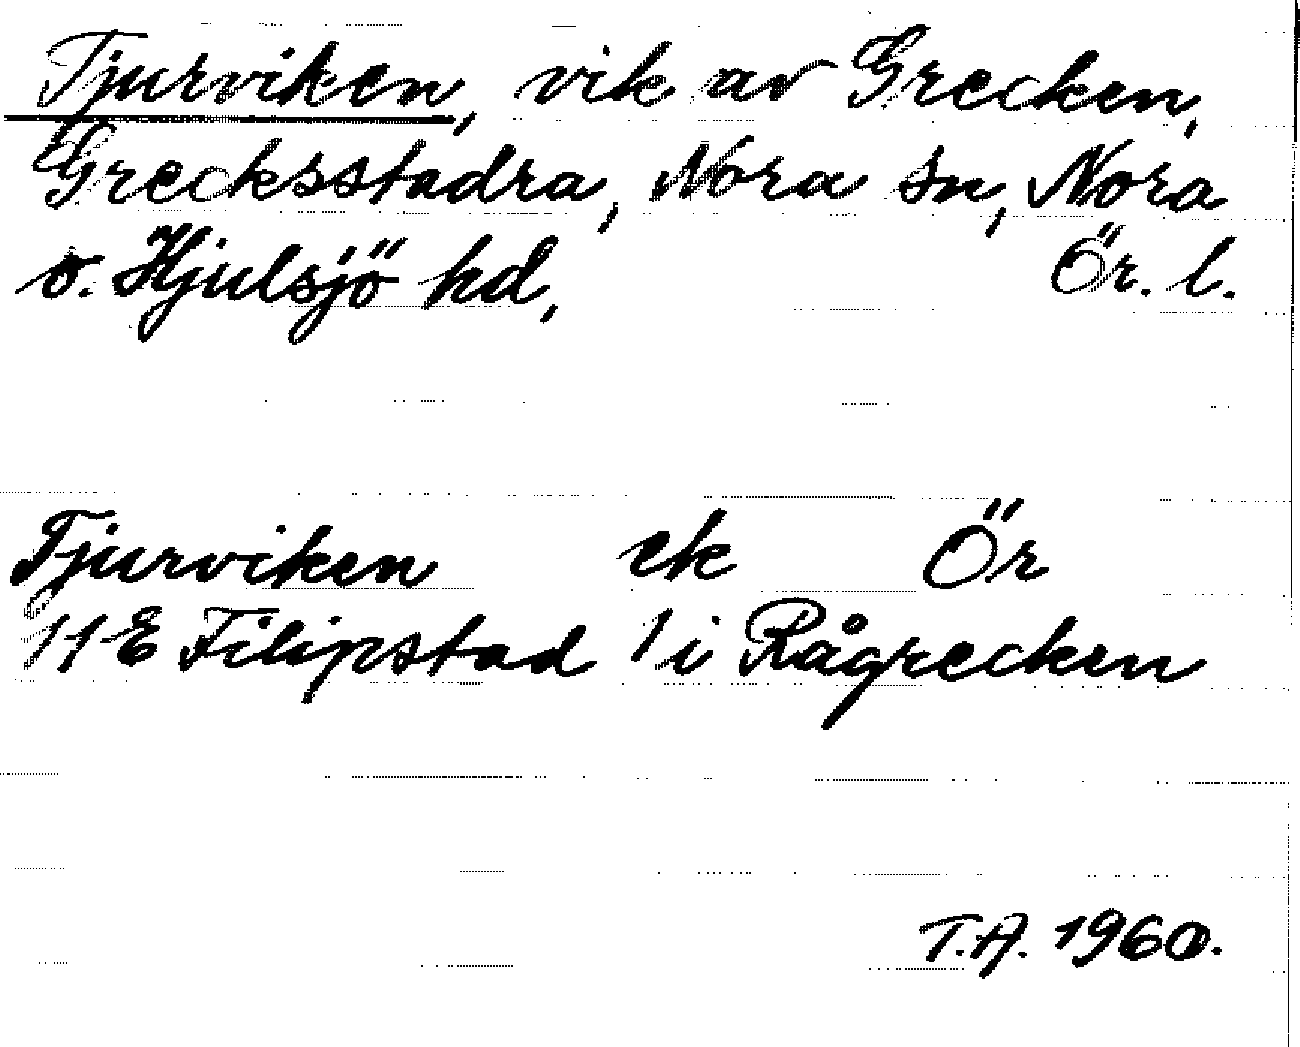 Tjurviken, vik av Grecken,
Grecksstadra, Nora sn, Nora
o. Hjulsjö hd, Ör. l.
Tjurviken ek Ör
11E Filipstad 1 i Rågrecken
T.A. 1960.